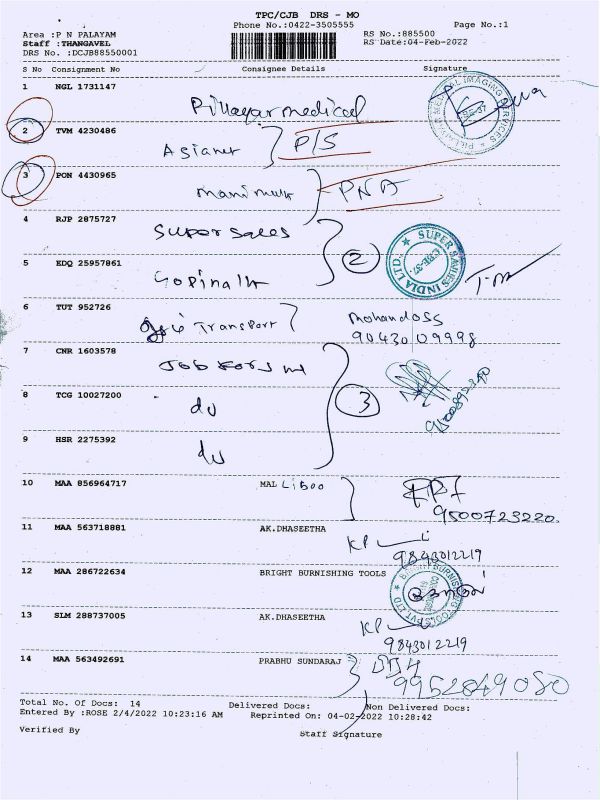 TPC/CJB DRS - MO
Phone No.:0422-3505555 Page No.:1
Area :P N PALAYAM RS No.:885500
Staff :THANGAVEL RS Date:04-Feb-2022
DRS No. :DCJB88550001
S No Consignment No Consignee Details Signature
1 NGL 1731147
Pillayar medical
2 TVM 4230486
Asianet P/S
3 PON 4430965
PNA
4 RJP 2875727
Super Sales
2
SUPER SALES INDIA LTD.
5 EDQ 25957861
Gopinath
6 TUT 952726
Transport
Mohandoss
9043009998
7 CNR 1603578
8 TCG 10027200
do
3
9 HSR 2275392
do
10 MAA 856964717 MAL Liboo
9500723220
11 MAA 563718881 AK.DHASEETHA
KP
9843012219
12 MAA 286722634 BRIGHT BURNISHING TOOLS
13 SLM 288737005 AK.DHASEETHA
KP
9843012219
14 MAA 563492691 PRABHU SUNDARAJ
9952849080
Total No. Of Docs: 14 Delivered Docs: Non Delivered Docs:
Entered By :ROSE 2/4/2022 10:23:16 AM Reprinted On: 04-02-2022 10:28:42
Verified By Staff Signature